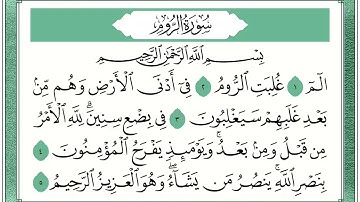 سُورَةُ الرُّومِ
بِسْمِ اللَّهِ الرَّحْمَٰنِ الرَّحِيمِ
الٓمٓ ١ غُلِبَتِ ٱلرُّومُ ٢ فِىٓ أَدْنَى ٱلْأَرْضِ وَهُم مِّنۢ
بَعْدِ غَلَبِهِمْ سَيَغْلِبُونَ ٣ فِى بِضْعِ سِنِينَ ۗ لِلَّهِ ٱلْأَمْرُ
مِن قَبْلُ وَمِنۢ بَعْدُ ۚ وَيَوْمَئِذٍ يَفْرَحُ ٱلْمُؤْمِنُونَ ٤
بِنَصْرِ ٱللَّهِ ۚ يَنصُرُ مَن يَشَآءُ ۖ وَهُوَ ٱلْعَزِيزُ ٱلرَّحِيمُ ٥